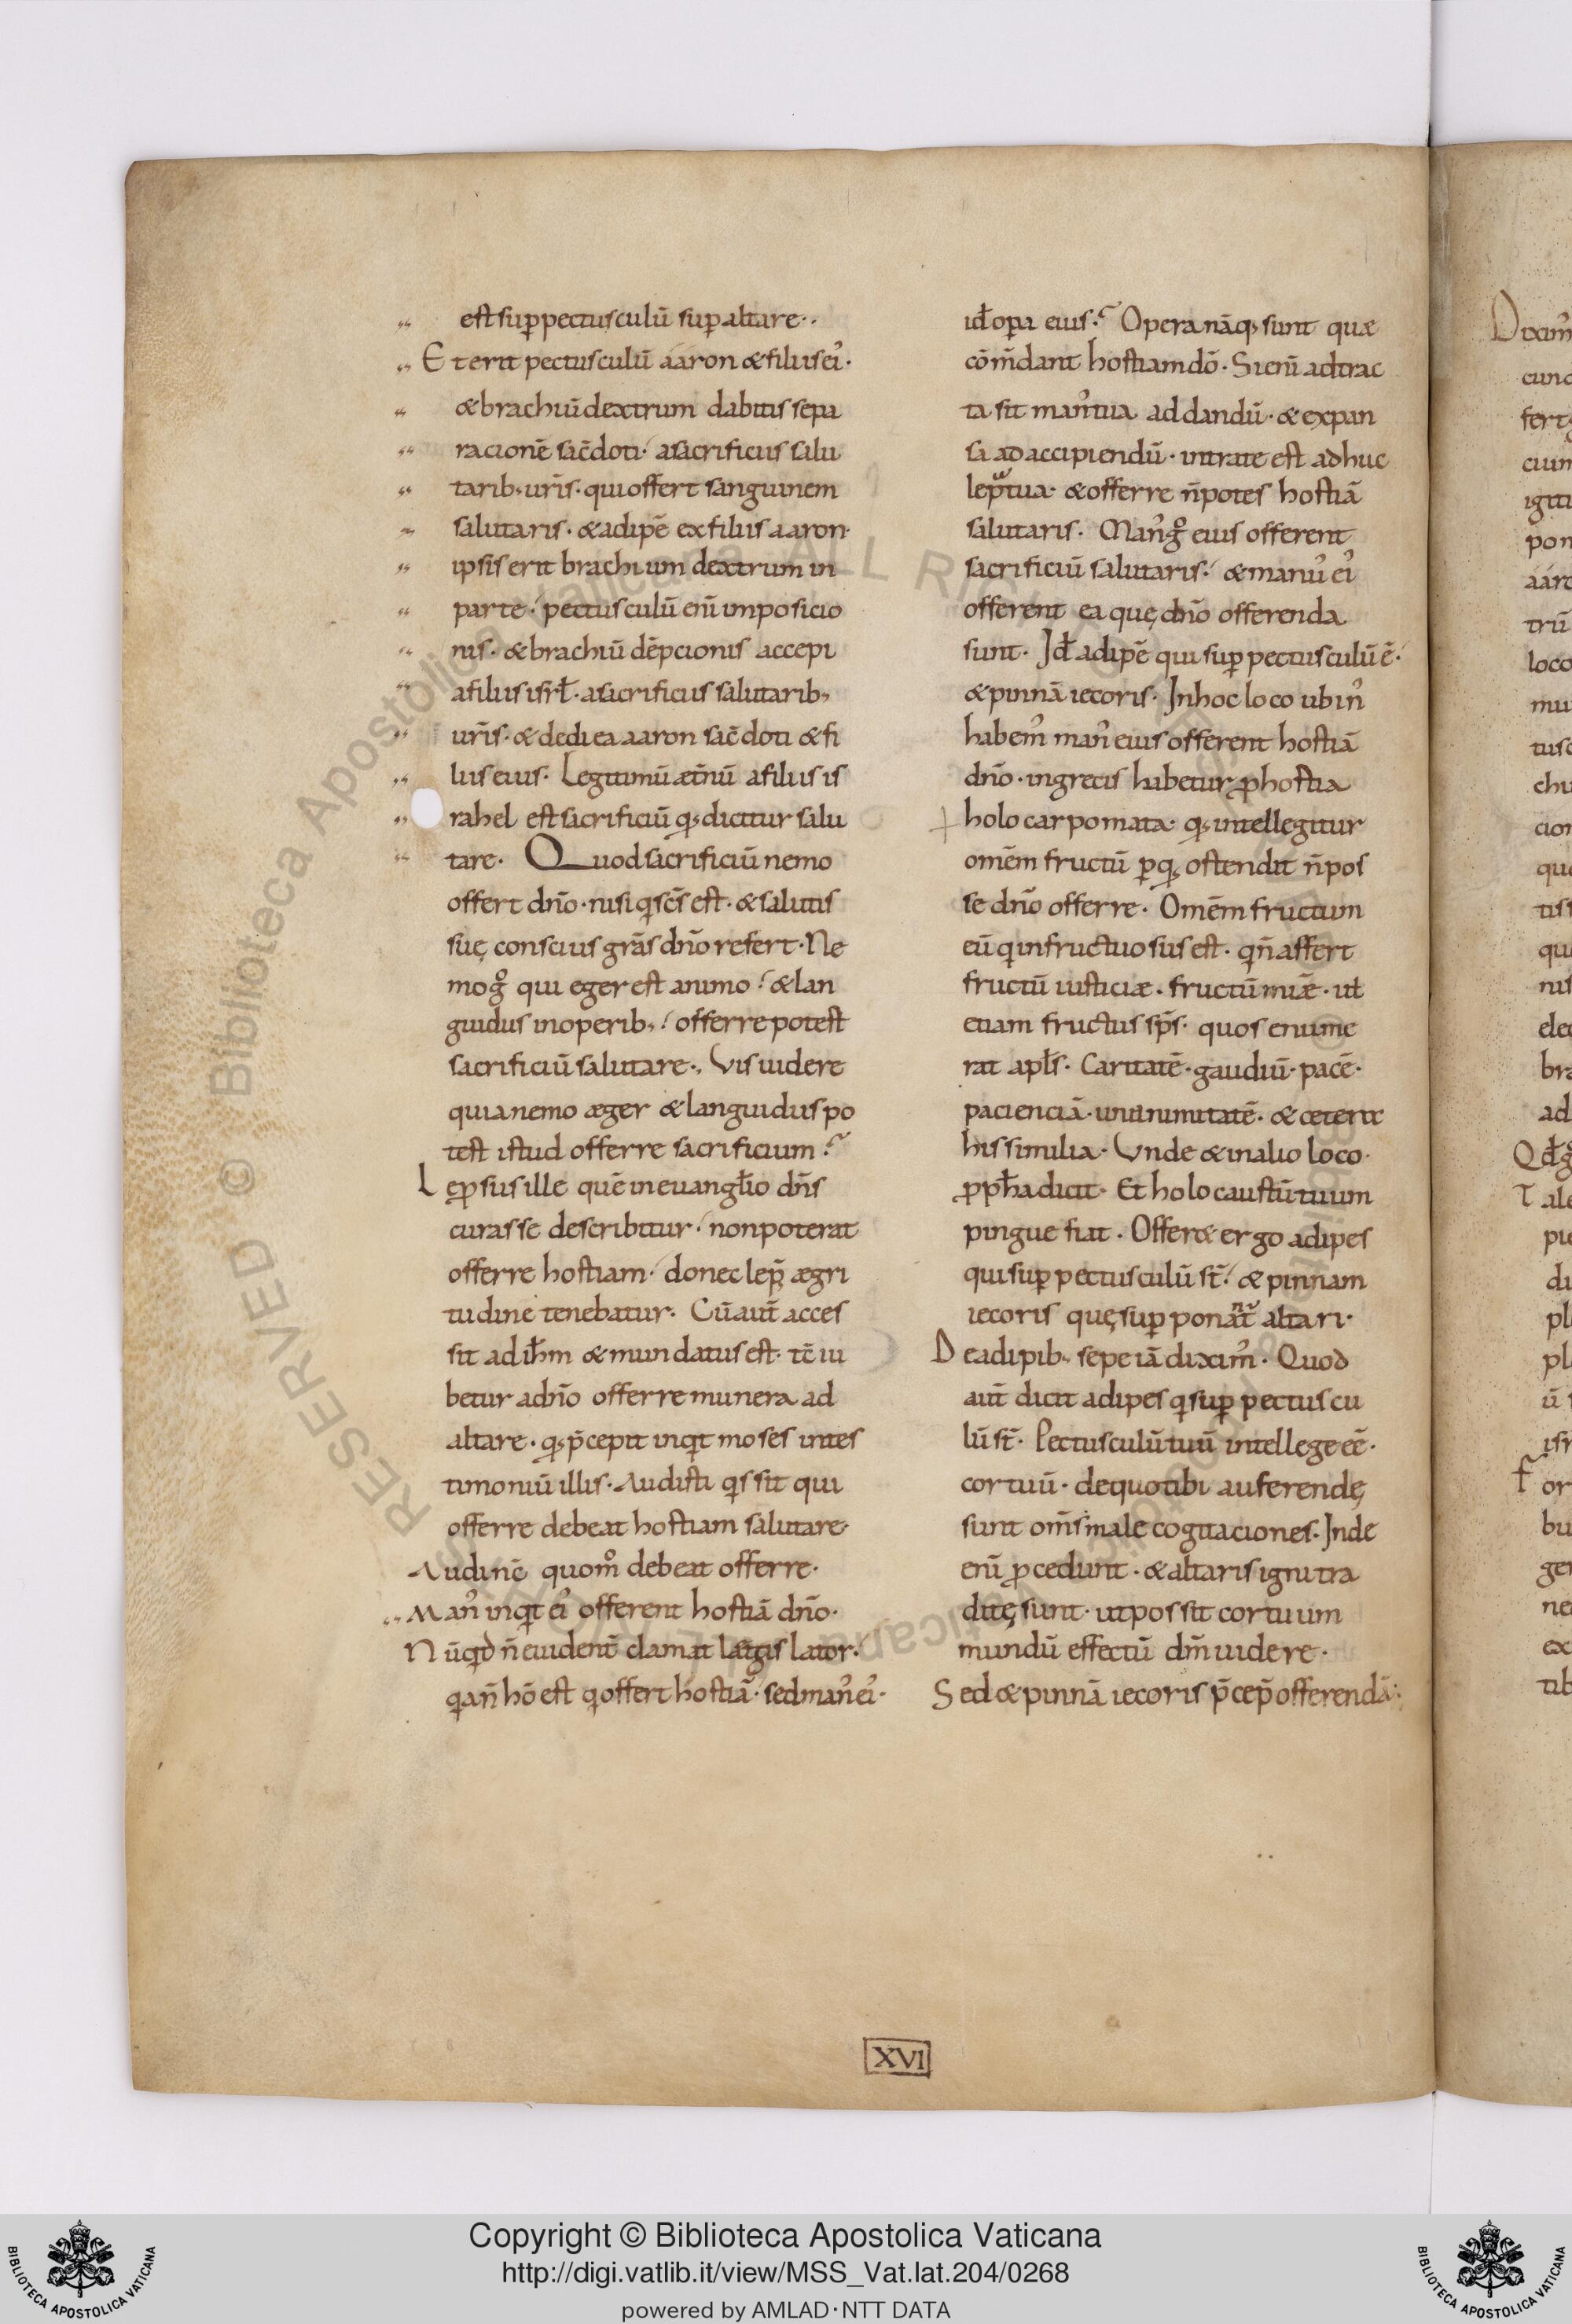 est sup̱ pectusculū sup̱ altare··
Et erit pectusculū aaron & filiis ei᾿·
& brachiū dextrum dabitis sepa
racionē sac̄doti· a sacrificiis salu
tarib; ur̄is· qui offert sanguinem
salutaris· & adipē ex filiis aaron·
ipsis erit brachium dextrum in
parte· pectusculū eni̅ imposicio
nis· & brachiū dēpcionis accepi
a filiis isrł· a sacrificiis salutarib;
ur̄is· & dedi ea aaron sac̄doti & fi
liis eius· Legitimū æt̄nū a filiis is
rahel est sacrificiū q; dicitur salu
tare· Quod sacrificiū nemo
offert dn̄o· nisi q̱ sc̄s est· & salutis
suę conscius grās dn̄o refert· Ne
mo gͦ qui eger est animo· & lan
guidus in operib;· offerre potest
sacrificiū salutare·, Vis uidere
quia nemo æger & languidus po
test istud offerre sacrificium?
Lep̱sus ille quē in euangłio dn̄s
curasse describitur· non poterat
offerre hostiam· donec lep̄ ægri
tudine tenebatur· Cū aut̄ acces
sit ad ihm̄ & mundatus est· tc̄ iu
betur a dn̄o offerre munera ad
altare· q; p̄cepit inq̱t moses in tes
timoniū illis· Audisti q̱s sit qui
offerre debeat hostiam salutare·
Audi n̄c quom̊ debeat offerre·
Man᾿ inq̱t ei᾿ offerent hostiā dn̄o·
Nūq̱d n̄ euident̄ clamat lægis lator·
q̱a n̄ hō est q̱ offert hostiā· sed man᾿ ei᾿·
id̵ op̱a eius·? Opera nāq; sunt quæ
cōm̄dant hostiam dō· Si eni̅ adtrac
ta sit man᾿ tua ad dandū· & expan
sa ad accipiendū· intrate est adhuc
lep̄ tua· & offerre n̄ potes hostiā
salutaris· Man᾿ gͦ eius offerent
sacrificiū salutaris· & manu᾿ ei᾿
offerent ea quę dn̄o offerenda
sunt· Id̵ adipē qui sup̱ pectusculū ē·
& pinnā iecoris· In hoc loco ubi n᾿
habem᾿ man᾿ eius offerent hostiā
dn̄o· in grecis habetur p̱ hostia
holocarpomata· q; intellegitur
omēm fructū p̱ q; ostendit n̄ pos
se dn̄o offerre· Omēm fructum
eū q̱ infructuosus est· q̱ n̄ affert
fructū iusticiæ· fructū mi̅æ· uł
etiam fructus sp̄s· quos enume
rat apłs· Caritatē· gaudiū· pacē·
pacienciā· unanimitatē· & cetera
his similia· Vnde & in alio loco·
p̱ph̄a dicit· Et holocaustū tuum
pingue fiat· Offer& ergo adipes
qui sup̱ pectusculū st̄· & pinnam
iecoris quę sup̱ ponat̄ altari·
De adipib; sepe iā dixim᾿· Quod
aut̄ dicit adipes q̱ sup̱ pectuscu
lū st̄· Pectusculū tuū intellege eē·
cor tuū· de quo tibi auferendę
sunt om̄s male cogitaciones· Inde
eni̅ p̱cedunt· & altaris igni tra
ditę sunt· ut possit cor tuum
mundū effectū dm̄ uidere·
Sed & pinnā iecoris p̄cep̄ offerendā·
XVI
Copyright © Biblioteca Apostolica Vaticana
http://digi.vatlib.it/view/MSS_Vat.lat.204/0268
powered by AMLAD·NTT DATA
BIBLIOTECA APOSTOLICA VATICANA
BIBLIOTECA APOSTOLICA VATICANA